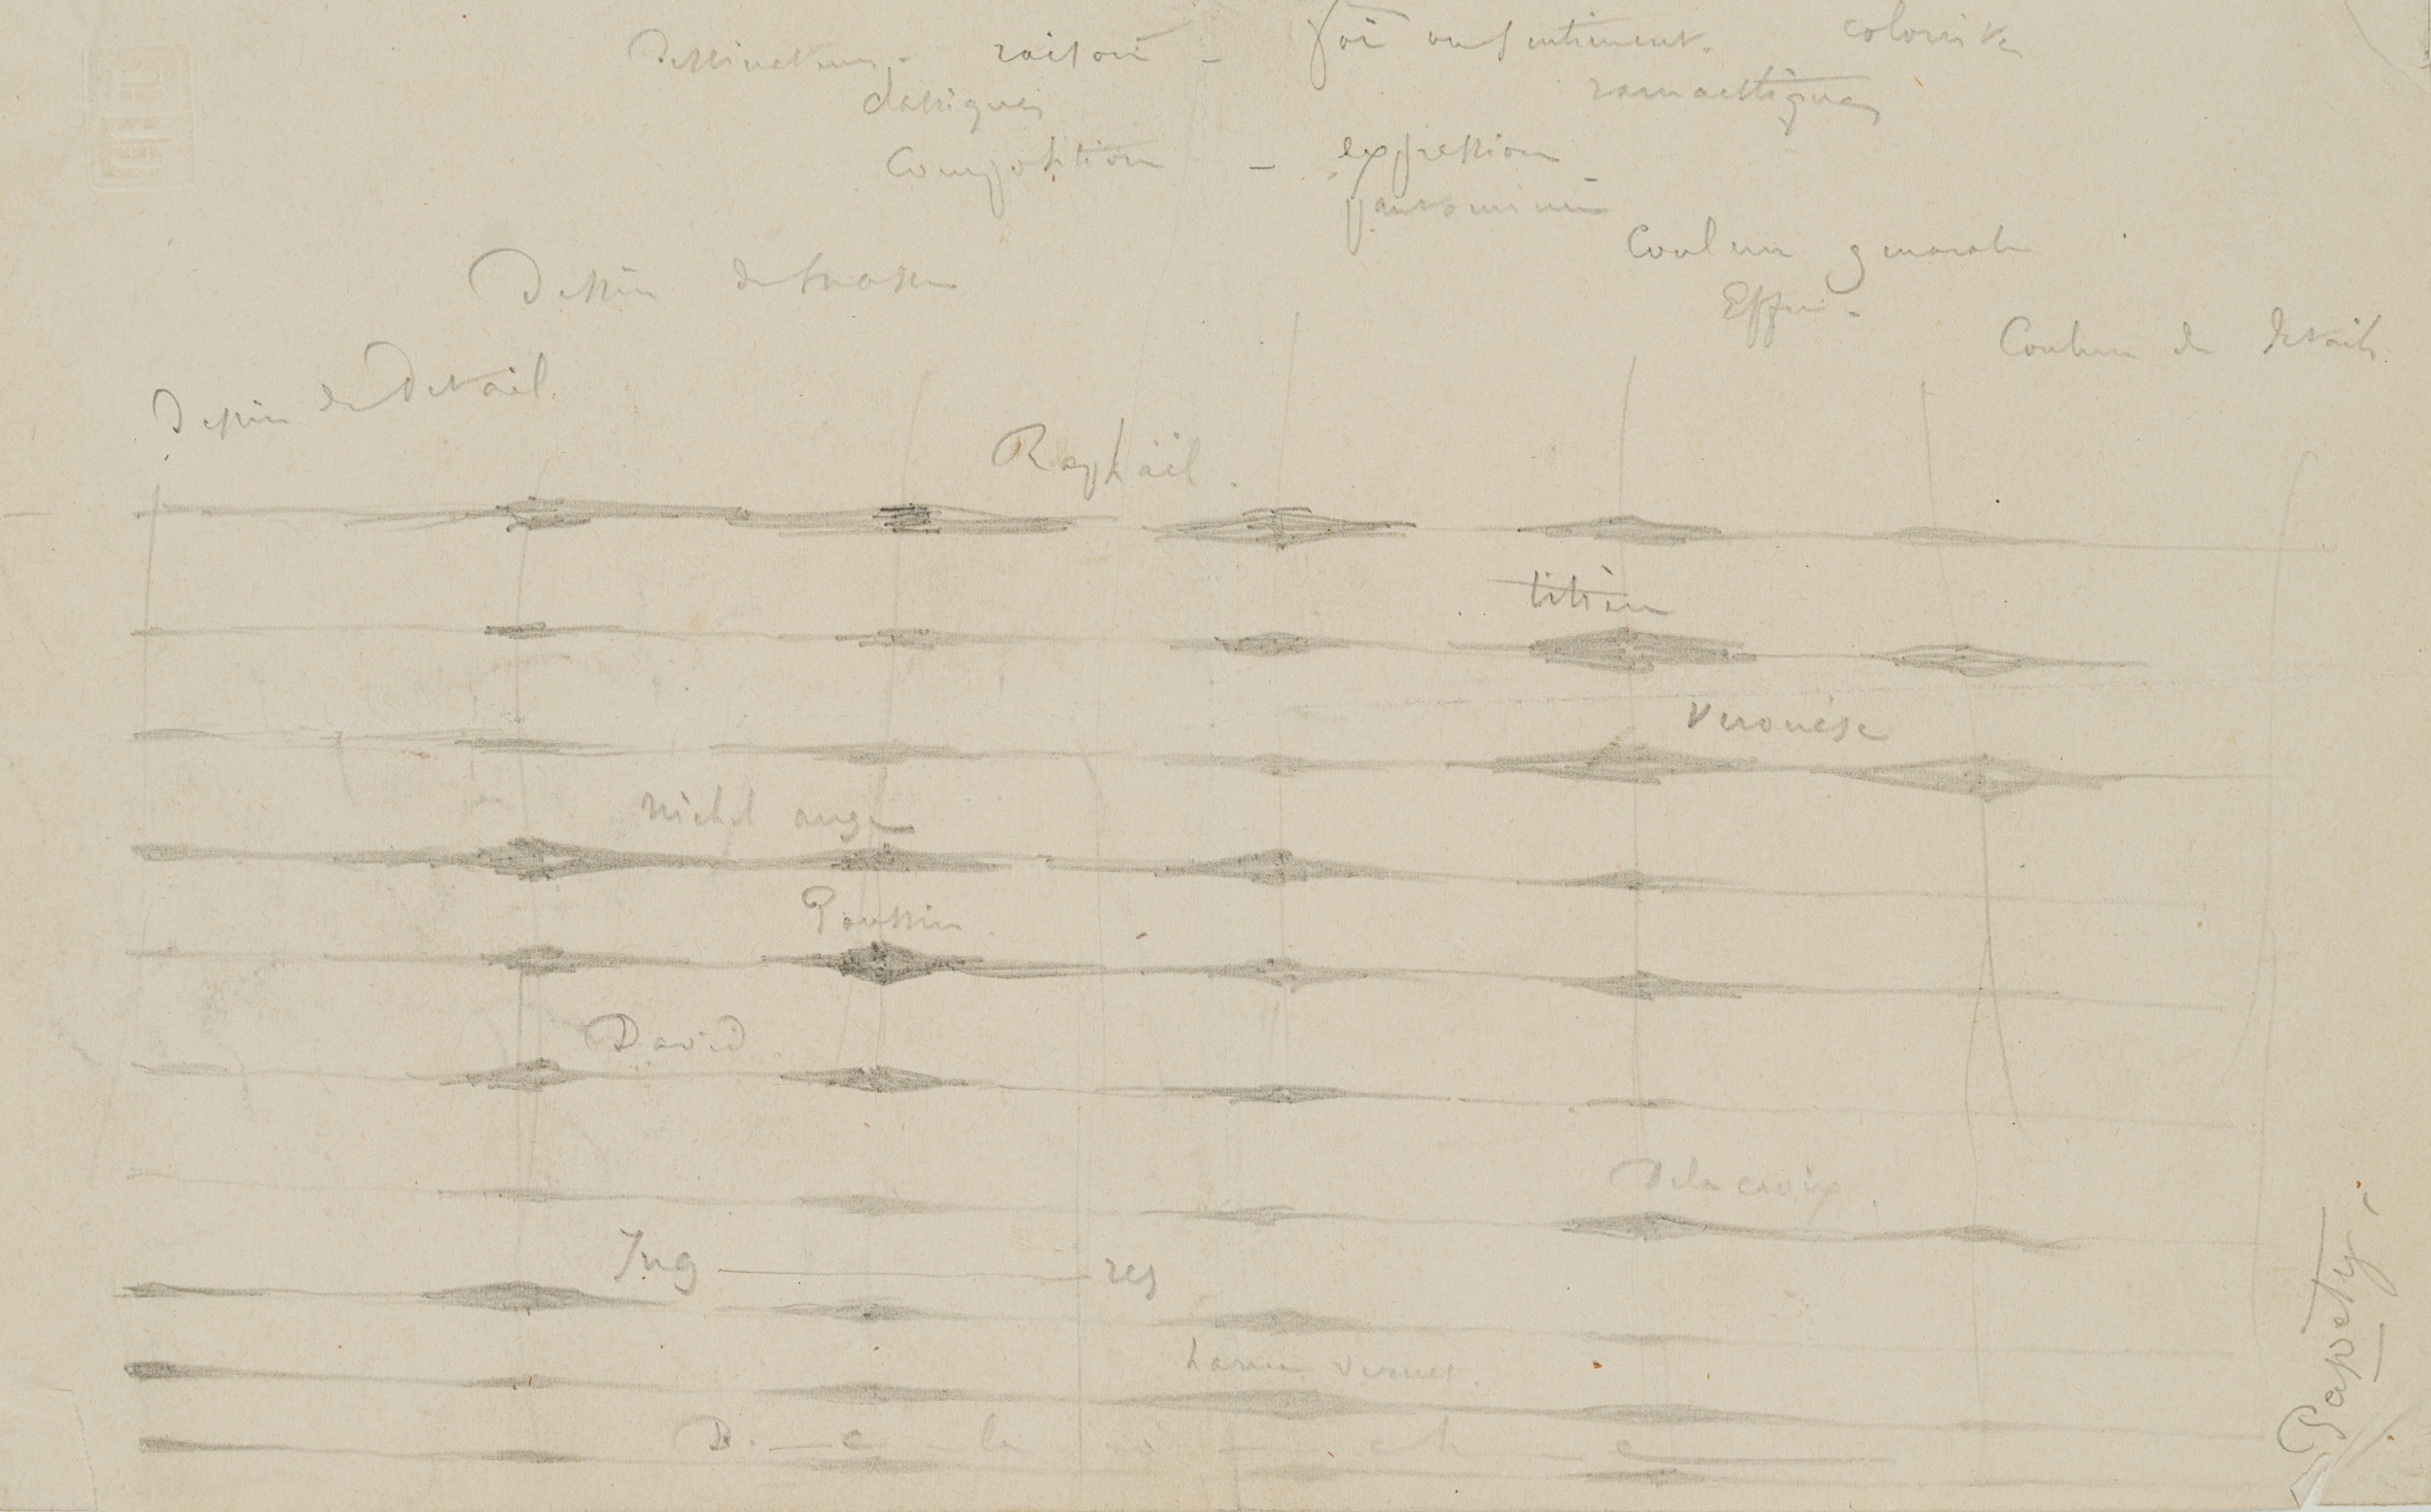 Dessinateurs. raison - foi ou sentiment. coloristes
classiques romantiques
Composition - expression
pantomime
Couleur generale
Dessin de masse
Effet.
Couleur de details
Dessin de Detail.
Raphaël.
titien
Veronèse
Michel ange
Poussin
David
Delacroix.
Ing———res
horace Vernet.
D. — e — la — ro — ch — e
Papety.